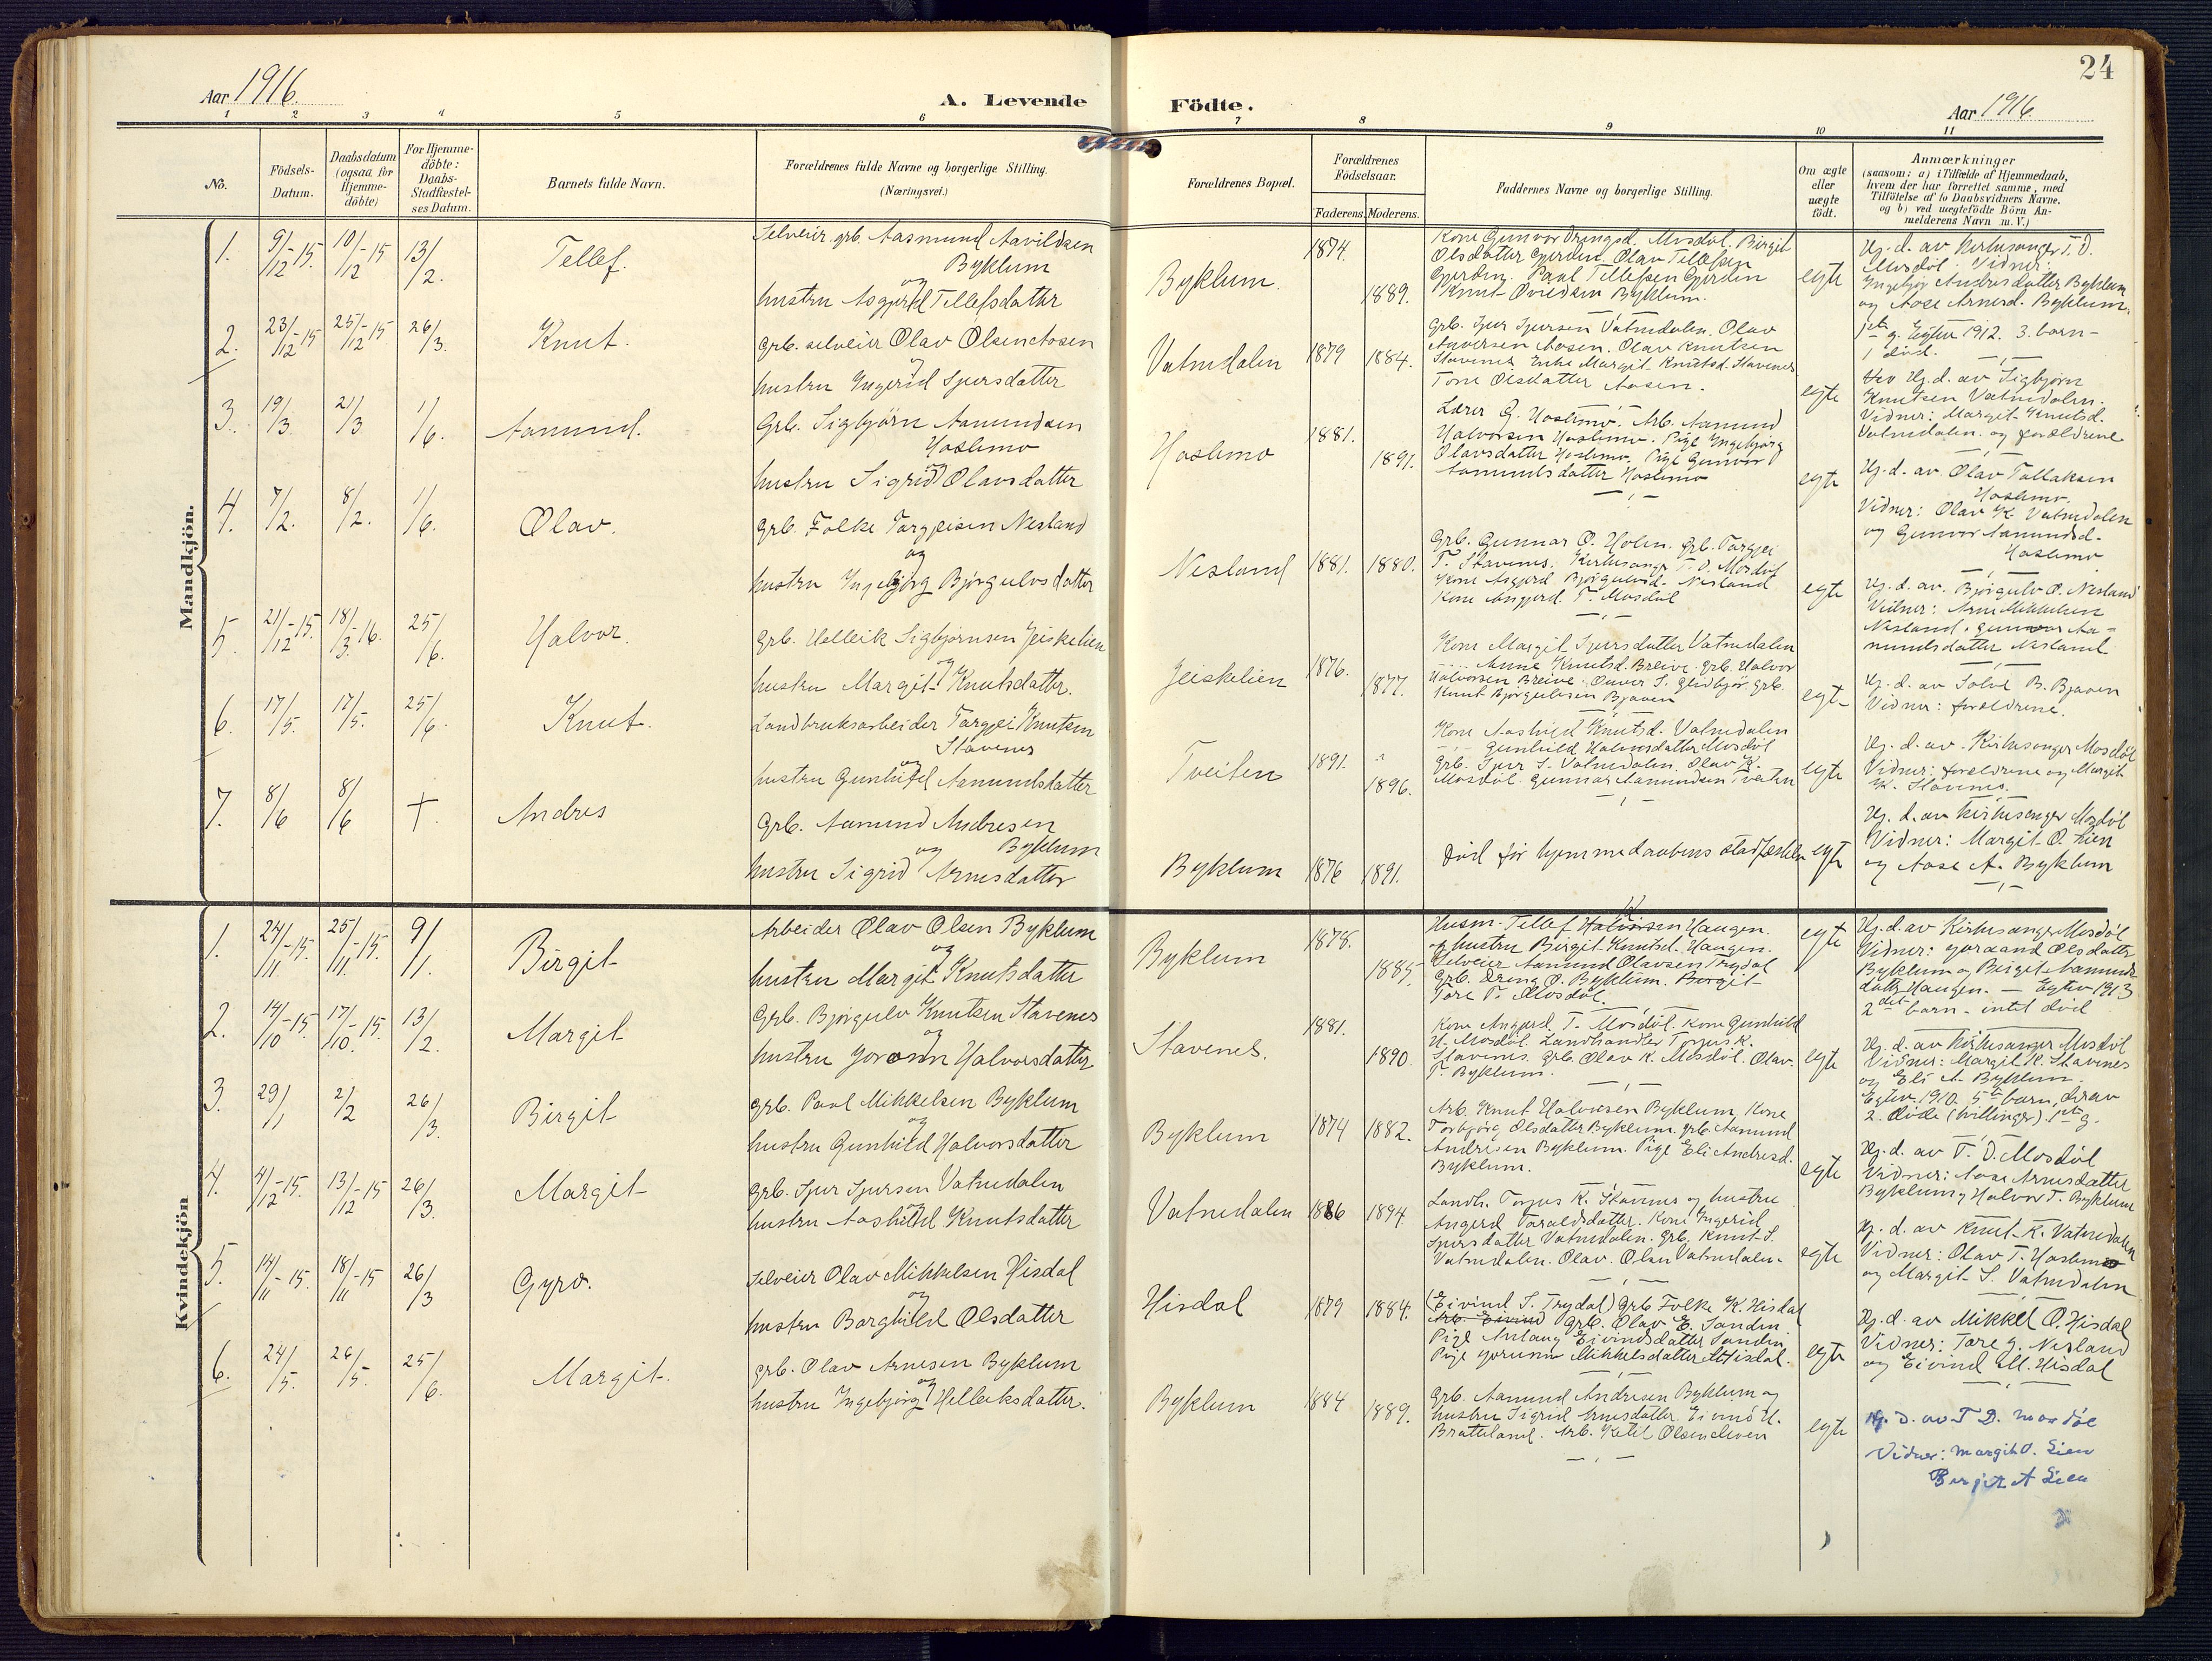 24
Aar 1916.
A. Levende
Födte.
Aar 1916.
1 2 3 4 5 6 7 8 9 10 11
No.
Födsels-
Datum.
Daabsdatum
(ogsaa for
Hjemme-
döbte)
For Hjemme-
döbte:
Daabs-
Stadfæstel-
ses Datum.
Barnets fulde Navn.
Forældrenes fulde Navne og borgerlige Stilling.
(Næringsvei.)
Forældrenes Bopæl.
Forældrenes
Födselsaar.
Faderens. Moderens.
Faddernes Navne og borgerlige Stilling.
Om ægte
eller
uægte
födt.
Anmærkninger
(saasom: a) i Tilfælde af Hjemmedaab,
hvem der har forrettet samme, med
Tilföielse af to Daabsvidners Navne,
og b) ved uægtefödte Börn An-
melderens Navn m. V.)
Mandkjön.
1. 9/12-15. 10/12-15 13/2. Tellef.
Selveier grb. Aasmund Aavildsen
Byklum
og
hustru Asgjerd Tellefsdatter
Byklum. 1874. 1889.
Kone Gunvor Dringsd. Mosdöl. Birgit
Olsdatter Gjerden. Olav Tellefsen
Gjerden. Paul Tellefsen Gjerden
Knut Ovildsen Byklum.
egte
Hj. d. av Kirkesanger T. D.
Mosdöl. Vidner:
Ingebjör Andresdatter Byklum
og Aase Arnesd. Byklum.
2. 23/12-15 25/12-15 26/3. Knut.
Grb. selveier Olav Olsen Aosen
og
hustru Ingerid Sjursdatter
Vatnedalen 1879 1884.
Grb. Sjur Sjursen Vatnedalen. Olav
Aosen. Olav Knutsen
Stavenes Enke Margit Knutsd. Stavenes
Tone Olsdatter Aosen.
egte
1ste g. Egtev 1912. 3. barn-
1 död.
Hj. d. av Sigbjörn
Knutsen Vatnedalen.
Vidner: Margit Knutsd.
Vatnedalen og forældrene
3. 19/3 21/3 1/6. Aamund.
Grb. Sigbjörn Aamundsen
Hoslemo
og
hustru Sigrid Olavsdatter
Hoslemo 1881. 1891.
Lærer G. Hoslemo. Arb. Aamund
Halvorsen Hoslemo. Pige Ingebjörg
Olavsdatter Hoslemo. Pige Gunvor
Aamundsdatter Hoslemo
egte
Hj. d. av Olav Tallaksen
Hoslemo.
Vidner: Olav K. Vatnedalen
og Gunvor Aamundsd.
Hoslemo
4. 7/2. 8/2. 1/6. Olav.
Grb. Folke Torgjeisen Nesland
og
hustru Ingebjörg Björgulvsdatter
Nesland 1881. 1880.
Grb. Gunnar O. Holen. Grb. Torgjei
T. Stavenes. Kirkesanger T. D. Mosdöl
Kone Asgjerd Björgulvsd. Nesland
Kone Angjerd T. Mosdöl
egte
Hj. d. av. Björgulv O. Nesland
Vidner: Arne Mikkelsen
Nesland. Gunvor Aa-
mundsdatter Nesland
5. 21/12-15. 18/3-16. 25/6. Halvor.
Grb. Helleik Sigbjörnsen Jeiskelien
og
hustru Margit Knutsdatter.
Jeiskelien 1876. 1877.
Kone Margit Sjursdatter Vatnedalen
Anne Knutsd. Breive. Grb. Halvor
Halvorsen Breive. S. Grb.
Knut Björgulvsen Bjaaen
egte
Hj. d. av Solve B. Bjaaen
Vidner: forældrene.
6. 17/5. 17/5. 25/6. Knut.
Landbruksarbeider Torgjei Knutsen
Stavenes
og
hustru Gunhild Aamundsdatter
Tveiten 1891. 1896.
Kone Aashild Knutsd. Vatnedalen
Gunhild Halvorsdatter Mosdöl
Grb. Sjur S. Vatnedalen. Olav K.
Mosdöl. Gunnar Aamundsen Tveiten
egte
Hj. d. av Kirkesanger Mosdöl
Vidner: forældrene og Margit
K. Stavenes.
7. 8/6 8/6 + Andres
Grb. Aamund Andresen
Byklum
og
hustru Sigrid Arnesdatter
Byklum 1876 1891.
Död för hjemmedaabens stadfæstelse
egte
Hj. d. av kirkesanger Mosdöl
Vidner: Margit O. Lien
og Aase A. Byklum
Kvindekjön
1. 24/11-15. 25/11-15. 9/1. Birgit
Arbeider Olav Olsen Byklum
og
hustru Margit Knutsdatter
Byklum 1878. 1885.
Husm. Tellef Haugen.
og hustru Birgit Knutsd. Haugen.
Selveier Aamund Olavsen Trydal
Grb. Dreng O. Byklum. Borgit
Tore T. Mosdöl.
egte
Hj. d. av Kirkesanger Mosdöl
Vidner: Olsdatter
Byklum og Birgit Aamunds
datter Haugen. — Egtev 1913
2det barn - intet död
2. 14/10-15. 17/10-15. 13/2. Margit
Grb. Björgulv Knutsen Stavenes
og
hustru Joronn Halvorsdatter
Stavenes. 1881. 1890.
Kone Angjerd T. Mosdöl. Kone Gunhild
H. Mosdöl. Landhandler Torjus K.
Stavenes. Grb. Olav K. Mosdöl. Olav
T. Byklum.
egte
Hj. d. av Kirkesanger Mosdöl
Vidner: Margit K. Stavenes
og Eli A. Byklum.
Egtev. 1910. 5te barn, derav
2. döde (tvillinger) 1ste g.
3. 29/1 2/2 26/3. Birgit
Grb. Paul Mikkelsen Byklum
og
hustru Gunhild Halvorsdatter
Byklum 1874 1882.
Arb. Knut Halvorsen Byklum, Kone
Torbjörg Olsdatter Byklum. Grb. Aamund
Andresen Byklum. Pige Eli Andresd.
Byklum.
egte
Hj. d. av T. D. Mosdöl
Vidner: Aase Arnesdatter
Byklum og Halvor T. Byklum
4. 4/12-15. 13/12-15 26/3. Margit
Grb. Sjur Sjursen Vatnedalen
og
hustru Aashild Knutsdatter
Vatnedalen 1886 1894.
Landh. Torjus K. Stavenes og hustru
Angerd Taraldsdatter. Kone Ingerid
Sjursdatter Vatnedalen. Grb. Knut S.
Vatnedalen. Olav Olsen Vatnedalen.
egte
Hj. d. av Knut K. Vatnedalen
Vidner: Olav T. Hoslemo
og Margit S. Vatnedalen
5. 14/11-15. 18/11-15 26/3 Gyro.
Selveier Olav Mikkelsen Hisdal
og
hustru Borghild Olsdatter
Hisdal 1879 1884.
(Eivind S. Trydal) Grb Folke K. Hisdal
Arb. Eivind Grb. Olav E. Sanden
Pige Anlaug Eivindsdatter Sanden
Pige Jorunn Mikkelsdatter Hisdal.
egte
Hj. d. av Mikkel O. Hisdal
Vidner: Tore G. Nesland
og Eivind M. Hisdal
6. 24/5. 26/5. 25/6. Margit.
Grb. Olav Arnesen Byklum
og
hustru Ingebjörg Helleiksdatter.
Byklum 1884 1889.
Grb. Aamund Andresen Byklum og
hustru Sigrid Arnesdatter. Eivind H.
Bratteland. Arb. Ketil Olsen
egte
Hj. d. av T. D. Mosdöl
Vidner: Margit O. Lien
Birgit A Lien